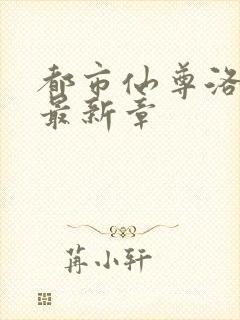 都市仙尊洛
最新章
苒小轩